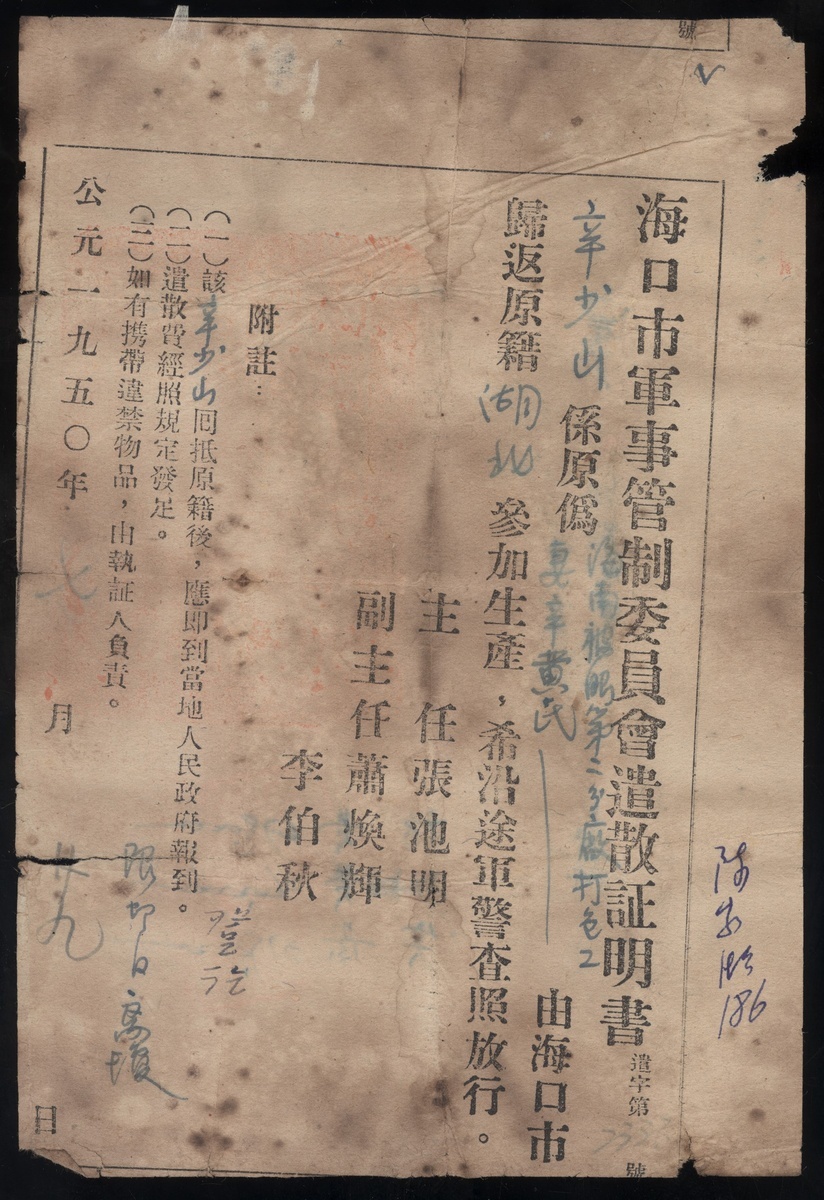 號
海口市軍事管制委員會遣散証明書 遣字第 號
辛少山 係原偽 海南被服第二分廠打包工 由海口市
歸返原籍 湖北 參加生產，希沿途軍警查照放行。
主 任 張池明
副主任 蕭煥輝
李伯秋
附註：
(一)該辛少山囘抵原籍後，應即到當地人民政府報到。
(二)遣散費經照規定發足。
(三)如有携帶違禁物品，由執証人負責。
登記
公元一九五〇年 七 月 廿九 日
186